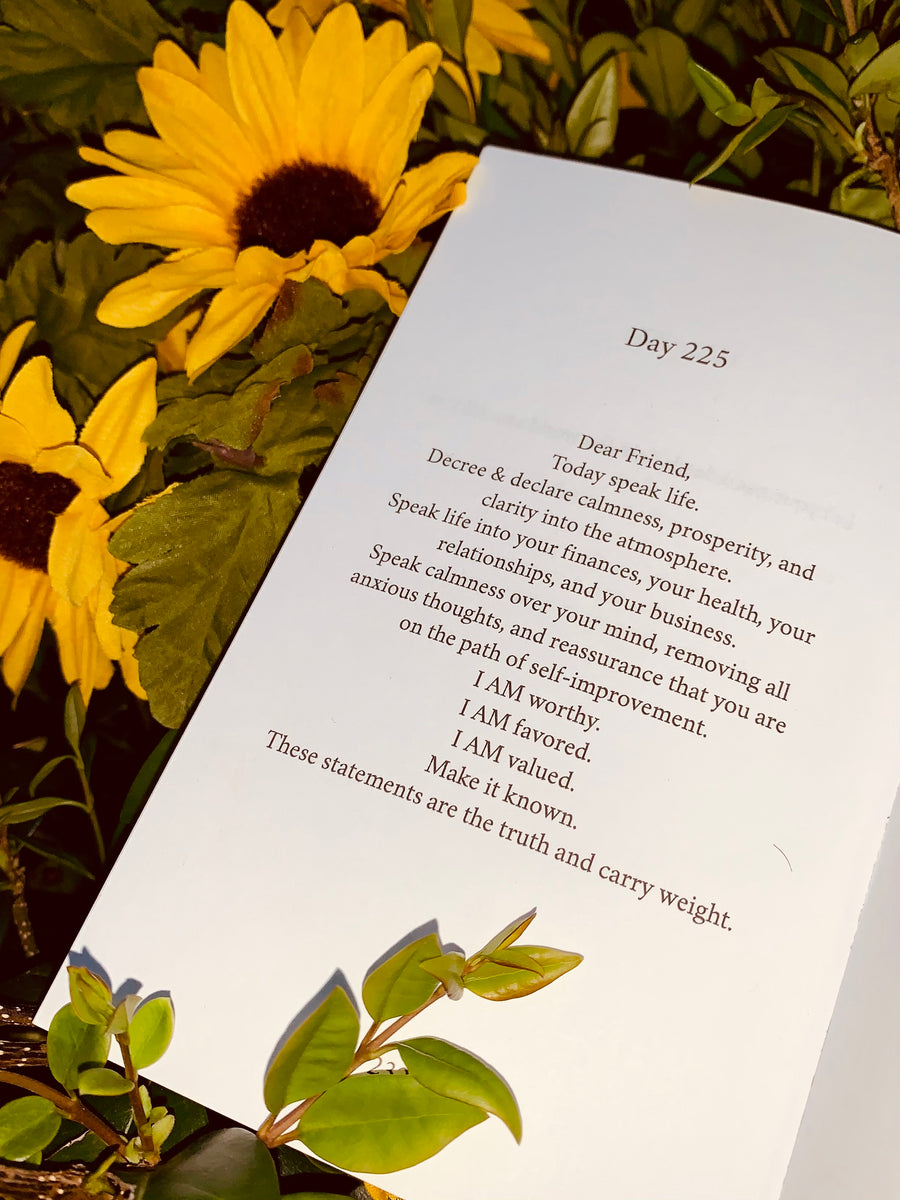 Day 225
Dear Friend,
Today speak life.
Decree & declare calmness, prosperity, and
clarity into the atmosphere.
Speak life into your finances, your health, your
relationships, and your business.
Speak calmness over your mind, removing all
anxious thoughts, and reassurance that you are
on the path of self-improvement.
I AM worthy.
I AM favored.
I AM valued.
Make it known.
These statements are the truth and carry weight.